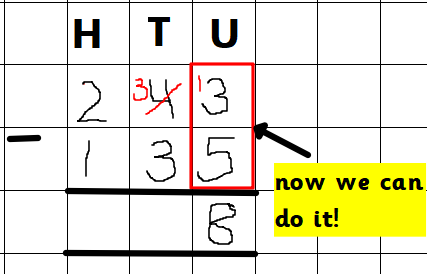 H T U
2 3 4 1 3
- 1 3 5
8
now we can
do it!